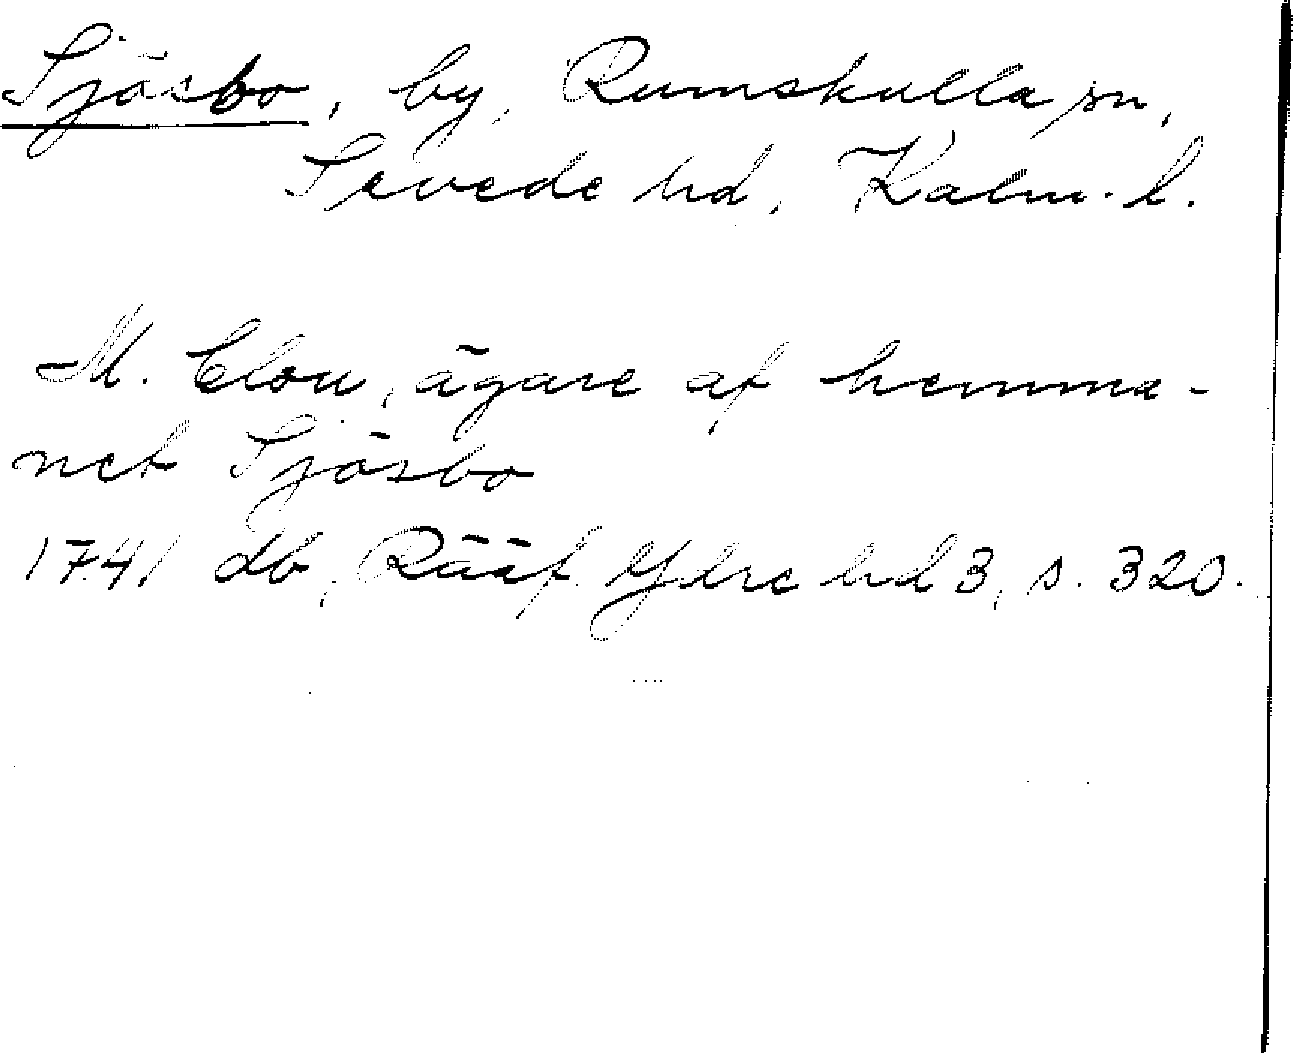 Sjösbo, by, Rumskulla sn,
Sevede hd, Kalm. l.
M. Clou, ägare af hemma-
net Sjösbo
1741 db, Rääf Ydre hd 3, s. 320.